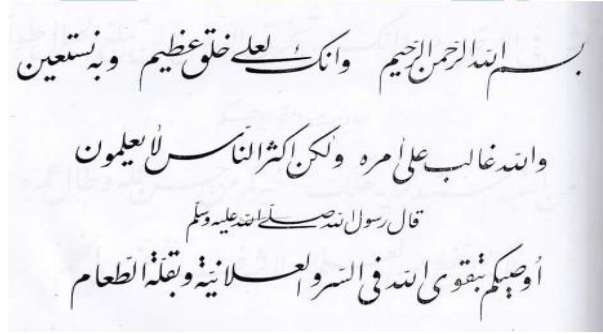 بسم الله الرحمن الرحيم وانك لعلى خلق عظيم وبه نستعين
والله غالب على أمره ولكن أكثر الناس لا يعلمون
قال رسول الله صلى الله عليه وسلم
أوصيكم بتقوى الله فى السر والعلانية وبقلة الطعام